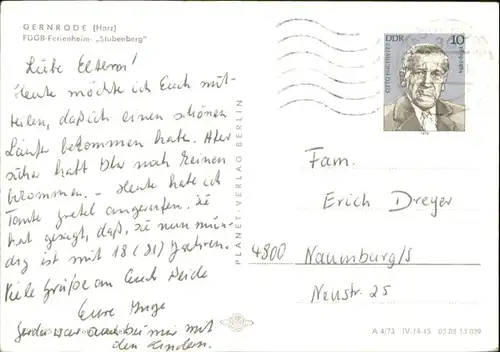 GERNRODE (Harz)
FDGB-Ferienheim „Stubenberg"
Liebe Eltern!
Heute möchte ich Euch mit-
teilen, daß ich einen schönen
Läufer bekommen habe. Aber
sicher habt Ihr noch keinen
bekommen. - Heute habe ich
Tante Gretel angerufen. Sie
hat gesagt, daß sie nun mün-
dig ist mit 18 (81) Jahren.
Viele Grüße an Euch beide
Eure Inge
Gerda war auch bei mir mit
den Kindern.
PLANET-VERLAG BERLIN
DDR 10
Fam.
Erich Dreyer
4800 Naumburg/S
Neustr. 25
A 4/73 IV-14-45 03 08 13 039